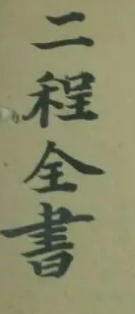 二程全書